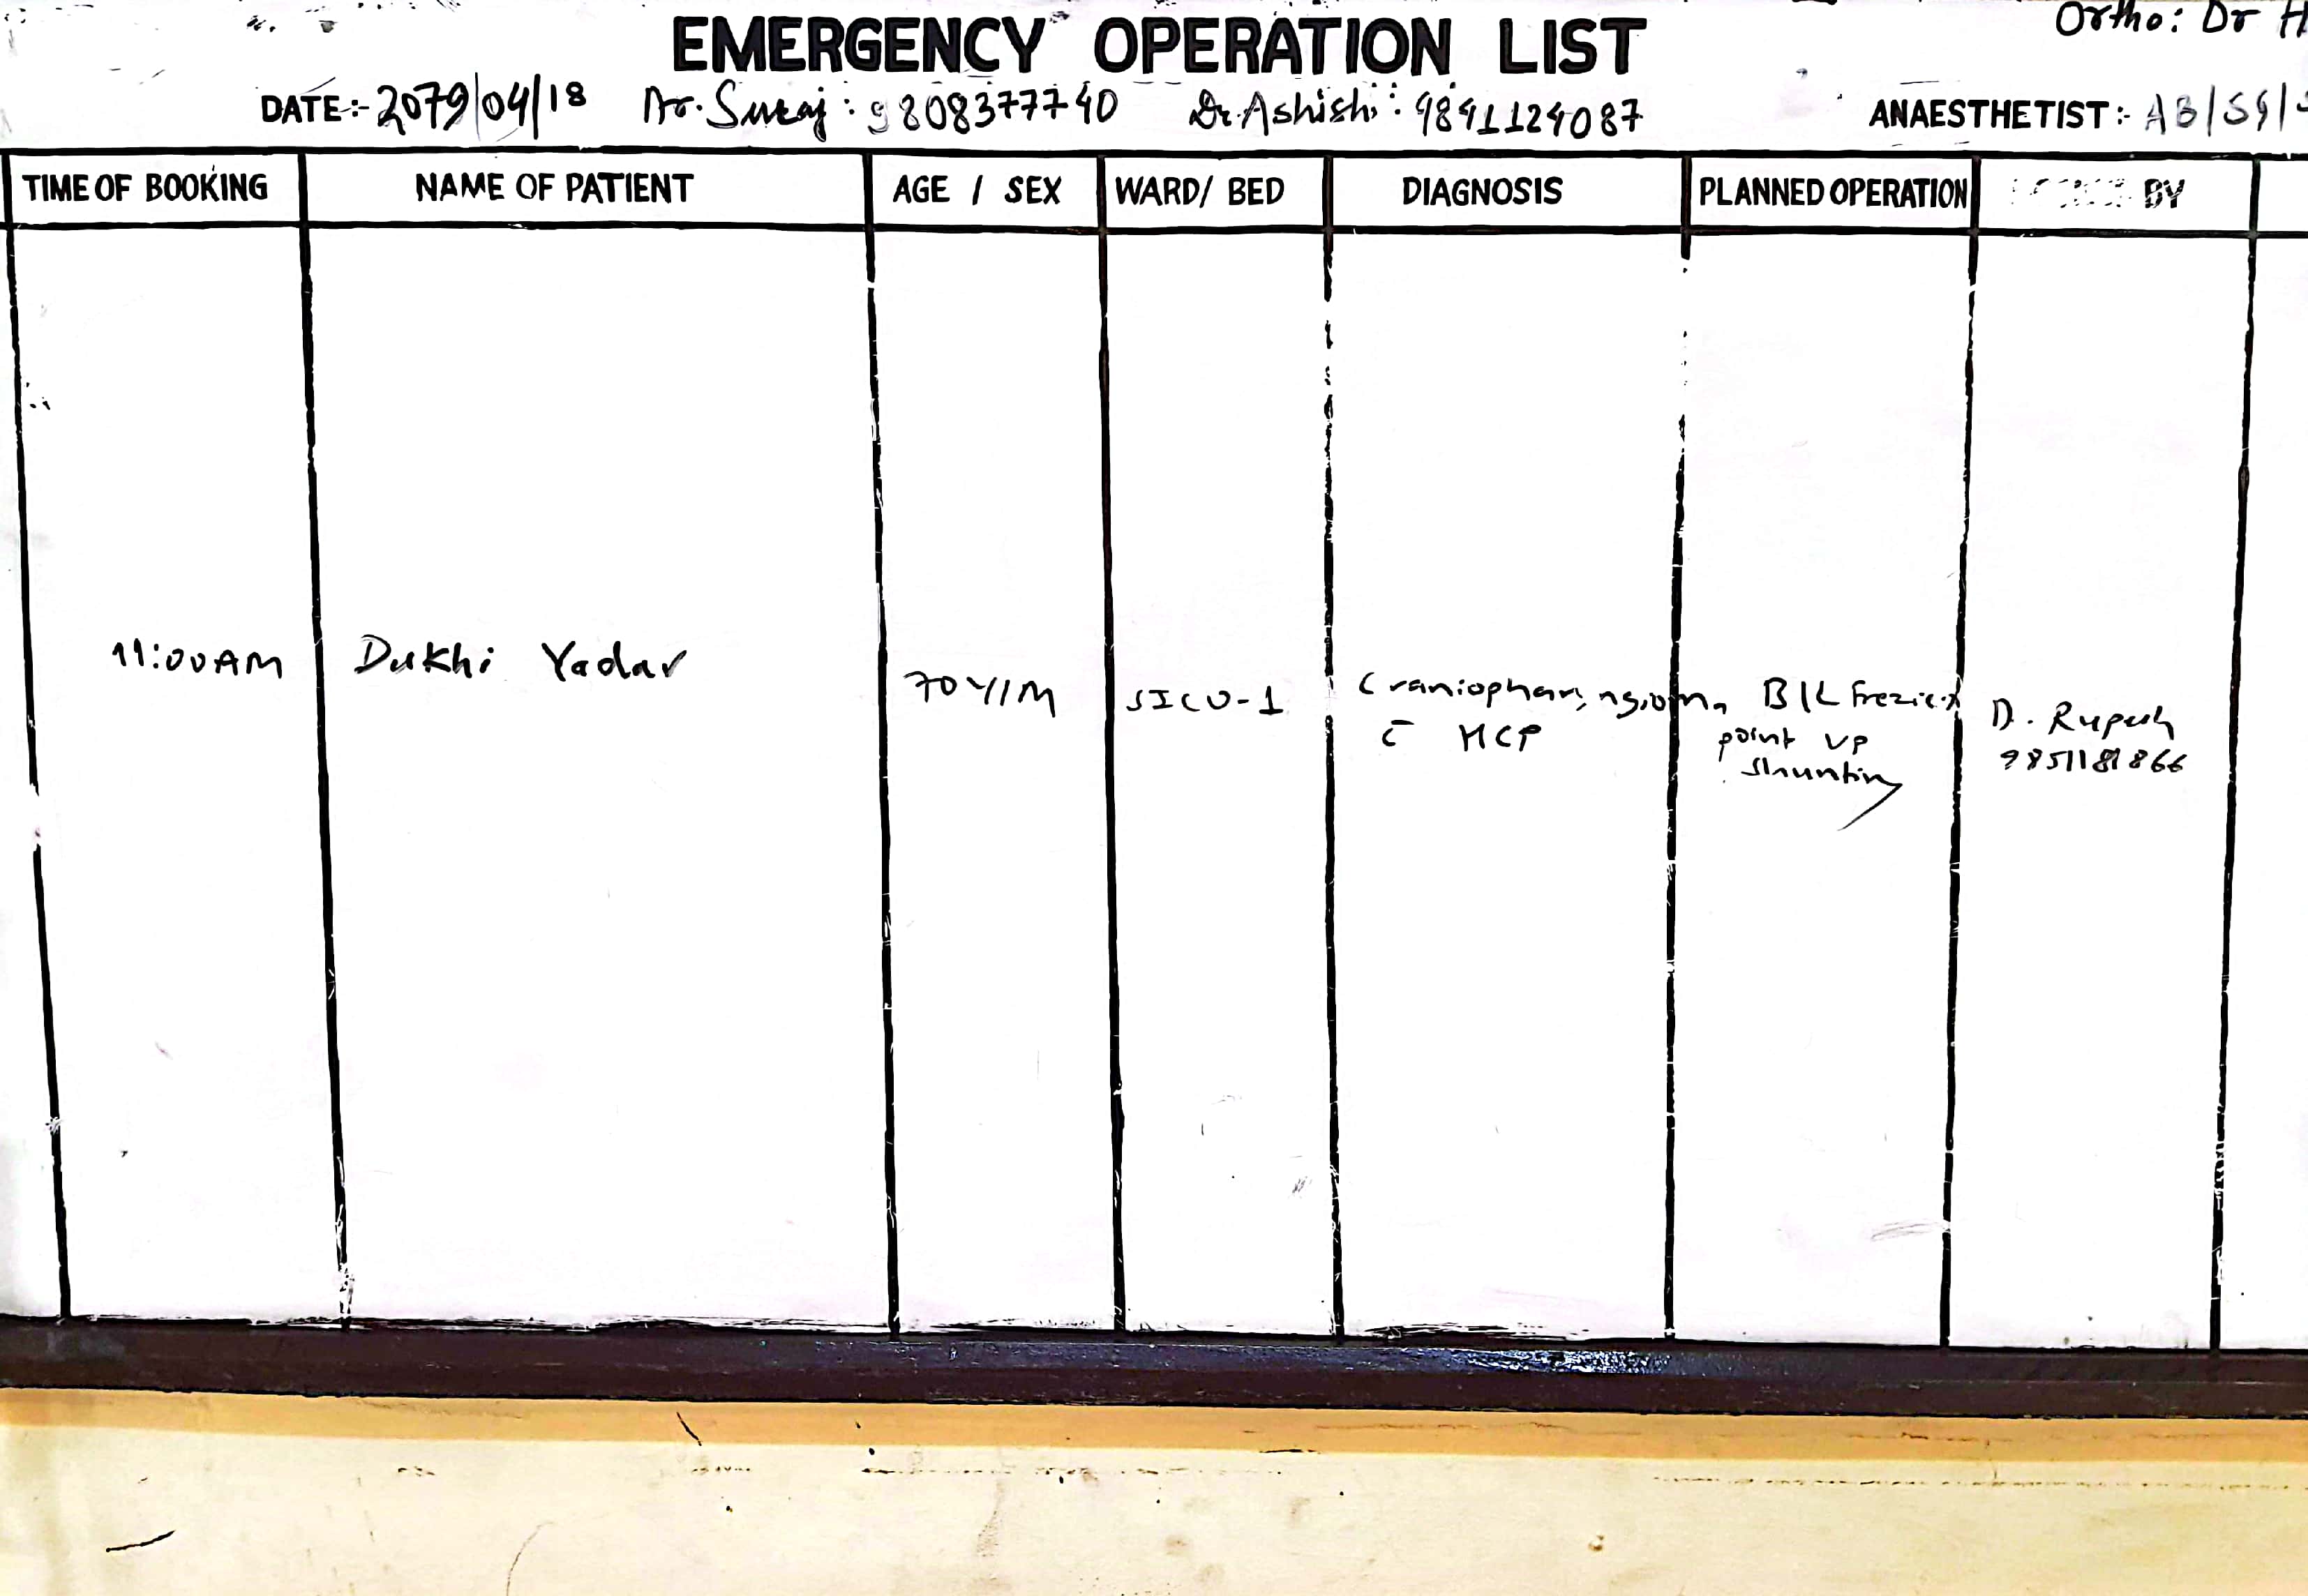 Ortho: Dr H
EMERGENCY OPERATION LIST
DATE:- 2079/04/18 Dr. Suraj: 9808377740 Dr. Ashish: 9841124087 ANAESTHETIST:- AB/SG/
TIME OF BOOKING NAME OF PATIENT AGE / SEX WARD/ BED DIAGNOSIS PLANNED OPERATION BY
11:00AM Dukhi Yadav 70Y/M SICU-1 Craniopharyngioma B/L Frezier
c̄ HCP point VP D. Rupesh
shunting 9851181866